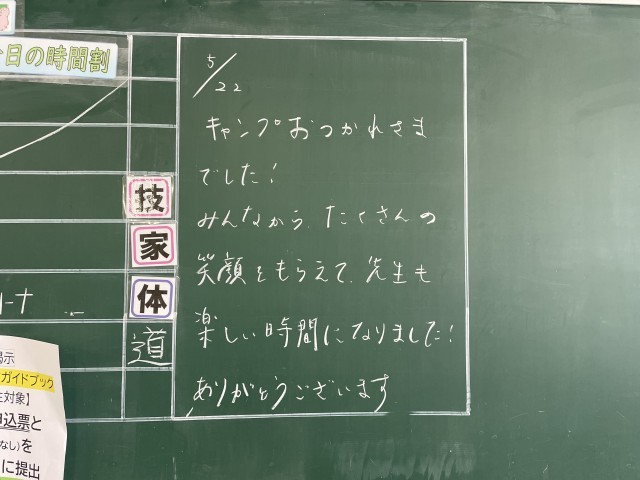 日の時間割
5/22
キャンプおつかれさま
でした!
みんなから、たくさんの
笑顔をもらえて、先生も
楽しい時間になりました!
ありがとうございます
技
家
体
道
ガイドブック
対象】
込票と
なし)を
に提出